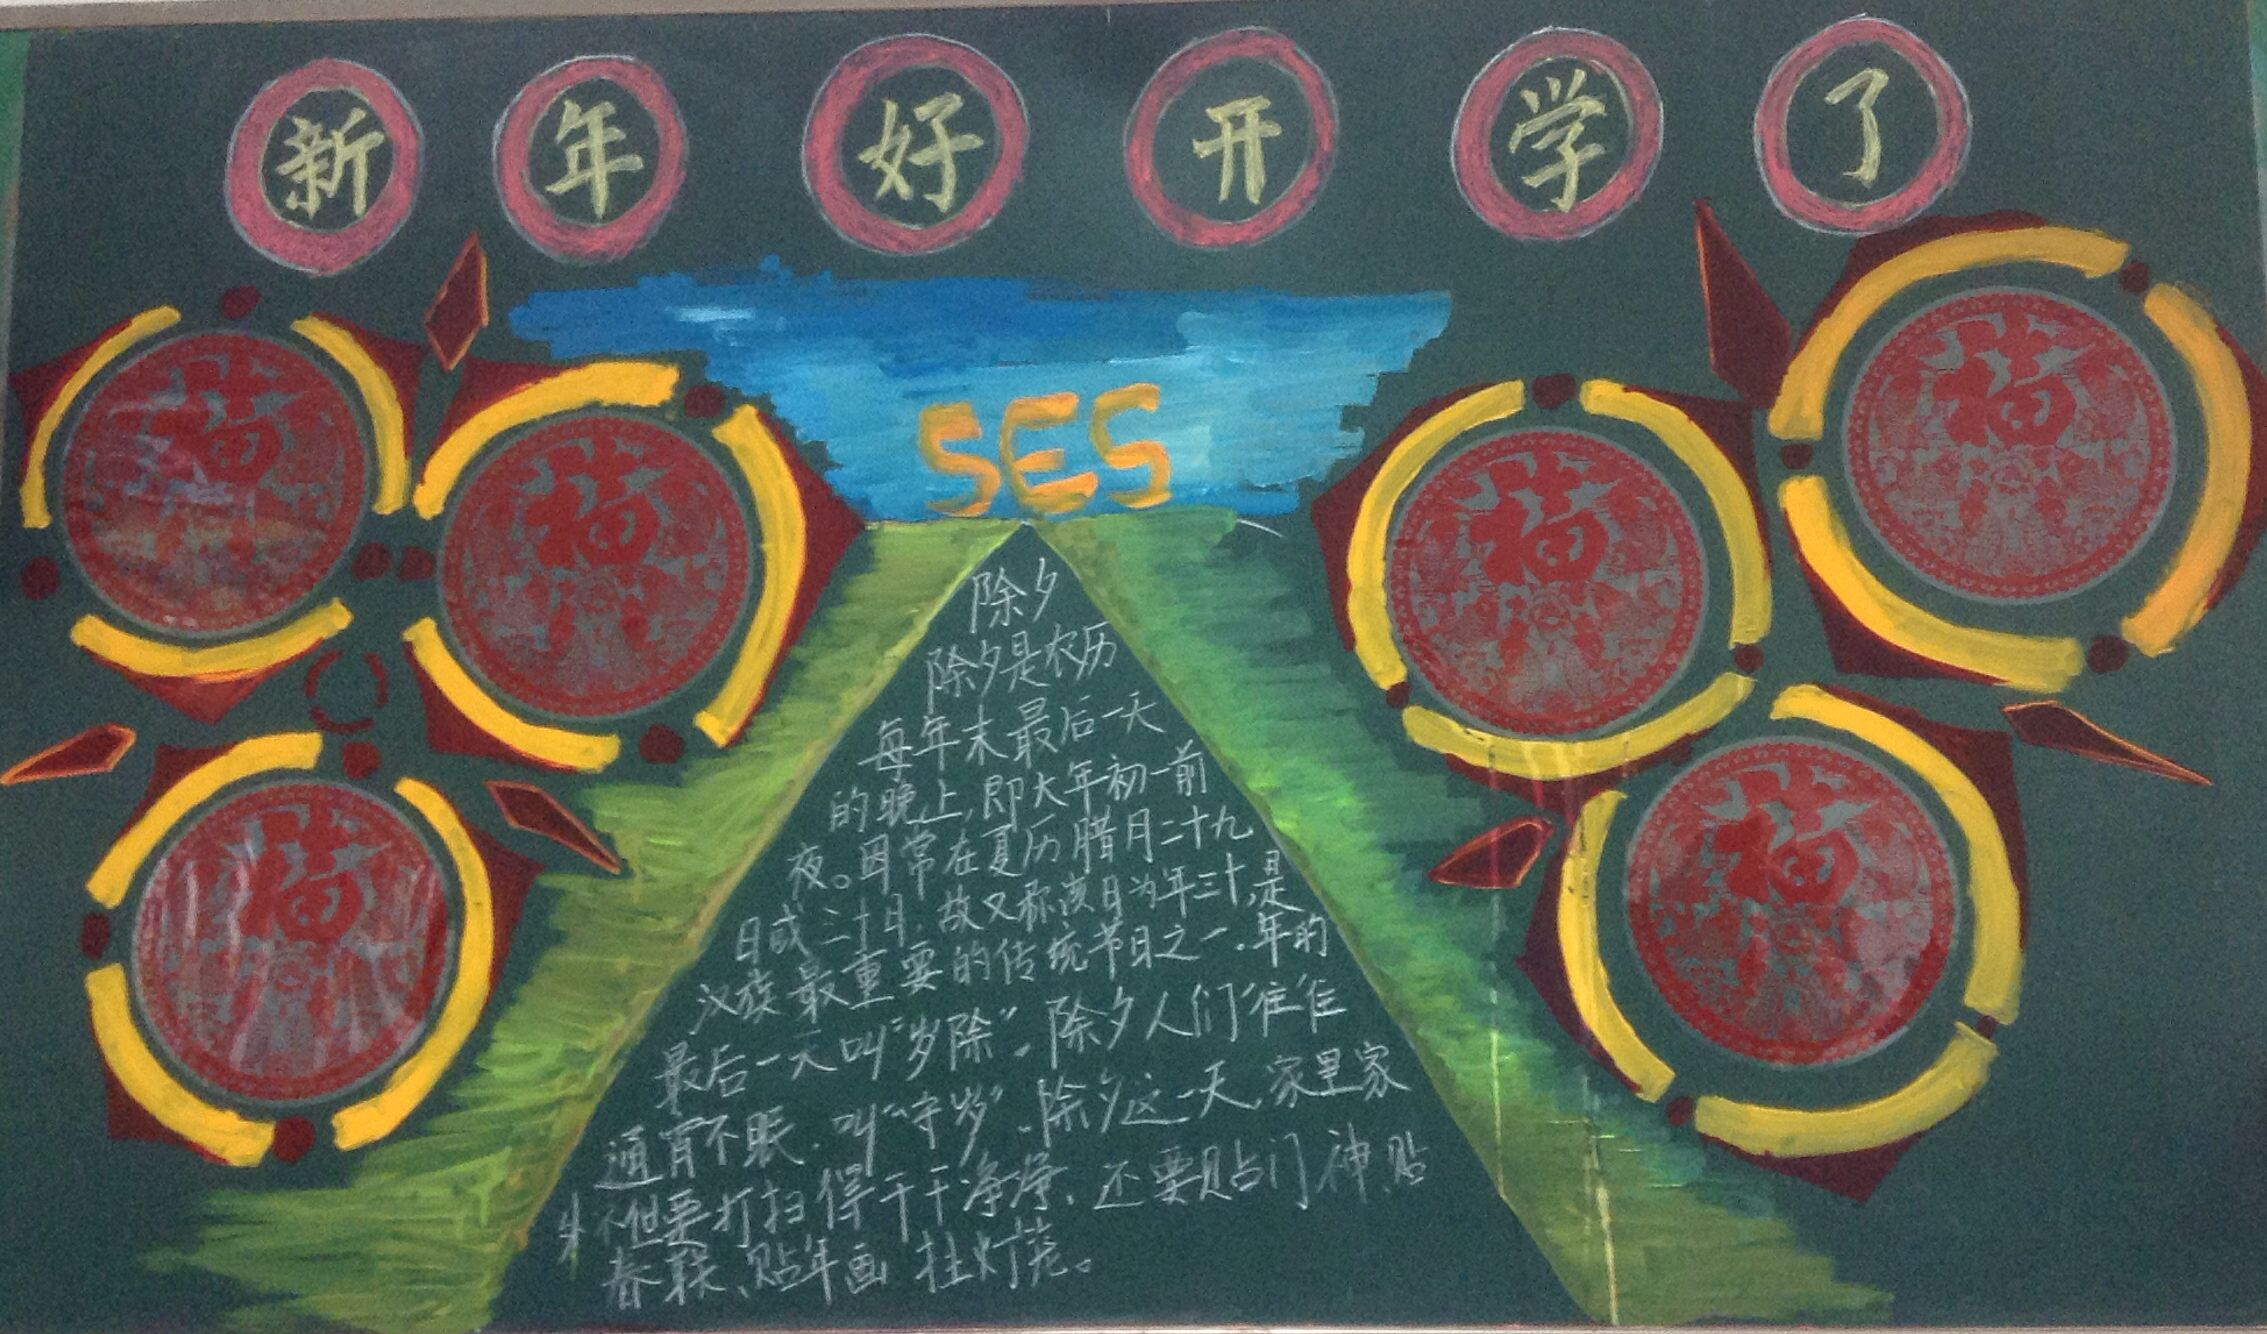 新年好开学了
福
福
福
福
福
福
SES
除夕
除夕是农历
每年末最后一天
的晚上,即大年初一前
夜。因常在夏历腊月二十九
日或三十日,故又称该日为年三十,是
汉族最重要的传统节日之一.年的
最后一天叫"岁除".除夕人们往往
通宵不眠.叫"守岁".除夕这一天,家里家
外不但要打扫得干干净净,还要贴门神.贴
春联、贴年画 挂灯笼。